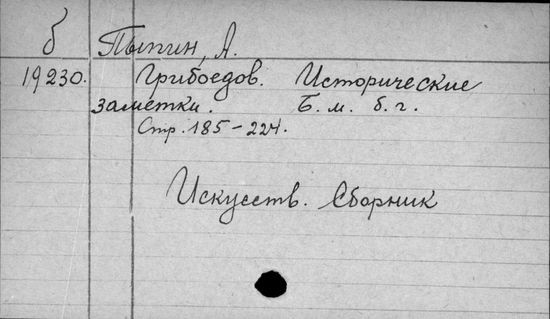 б Пыпин, А.
19230. Грибоедов. Исторические
заметки. Б. м. б. г.
Стр. 185-224.
Искусств. Сборник